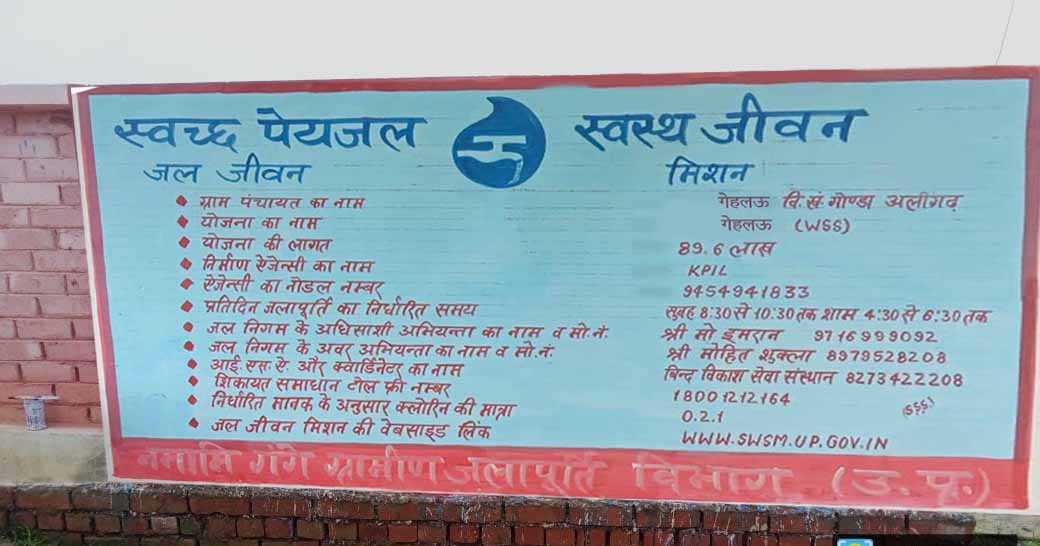 स्वच्छ पेयजल स्वस्थ जीवन
जल जीवन मिशन
ग्राम पंचायत का नाम गेहलऊ वि.खं. गोण्डा अलीगढ़
योजना का नाम गेहलऊ (WSS)
योजना की लागत 89.6 लाख
निर्माण ऐजेन्सी का नाम KPIL
ऐजेन्सी का नोडल नम्बर 9454941833
प्रतिदिन जलापूर्ति का निर्धारित समय सुबह 8:30 से 10:30 तक शाम 4:30 से 6:30 तक
जल निगम के अधिसाशी अभियन्ता का नाम व मो.नं. श्री मो. इमरान 9716999092
जल निगम के अवर अभियन्ता का नाम व मो.नं. श्री मोहित शुक्ला 8979528208
आई.एस.ऐ. और क्वार्डिनेटर का नाम बिन्द विकाश सेवा संस्थान 8273422208
शिकायत समाधान टोल फ्री नम्बर 18001212164
निर्धारित मानक के अनुसार क्लोरिन की मात्रा 0.2.1 (SSS)
जल जीवन मिशन की वेबसाइड लिंक WWW.SWSM.UP.GOV.IN
नमामि गंगे ग्रामीण जलापूर्ति विभाग (उ.प्र.)